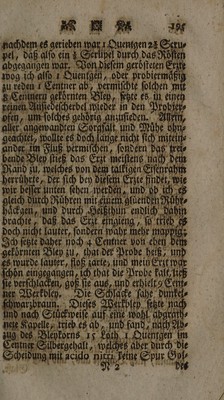 195
nachdem es gerieben war 1 Quentgen 2¾ Scru-
pel, daß also ein ¼ Scrüpel durch das Rösten
abgegangen war. Von diesem gerösteten Erzte
wog ich also 1 Quentgen, oder probiermäßig
zu reden 1 Centner ab, vermischte solchen mit
8 Centnern gekörnten Bley, setzte es in einen
reinen Ansiedescherbel wieder in den Probier-
ofen, um solches gehörig anzusieden. Allein,
aller angewandten Sorgfalt und Mühe ohn-
geachtet, wollte es doch lange nicht sich mitein-
ander im Fluß vermischen, sondern das trei-
bende Bley stieß das Erzt meistens nach dem
Rand zu, welches von dem häufigen Eisenrahm
herrührte, der sich bey diesem Erzte findet, wie
wir besser unten sehen werden, und ob ich es
gleich durch Rühren mit einem glüenden Rühr-
häckgen, und durch Heißthun endlich dahin
brachte, daß das Erzt eingieng, so trieb es
doch nicht lauter, sondern wahr mehr mappig;
Ich setzte daher noch 4 Centner von eben dem
gekörnten Bley zu, that der Probe heiß, und
es wurde lauter, floß zarte, und mein Erzt war
schön eingegangen, ich that die Probe kalt, ließ
sie verschlacken, goß sie aus, und erhielt 9 Cent-
ner Werkbley. Die Schlacke sahe dunkel-
schwarzbraun. Dieses Werkbley setzte nach
und nach Stückweise auf eine wohl abgeath-
nete Kapelle, trieb es ab, und fand, nach Ab-
zug des Bleykorns 15 Loth 1 Quentgen im
Centner Silbergehalt, welches aber durch die
Scheidung mit acido nitri keine Spur Gol-
N 2 des